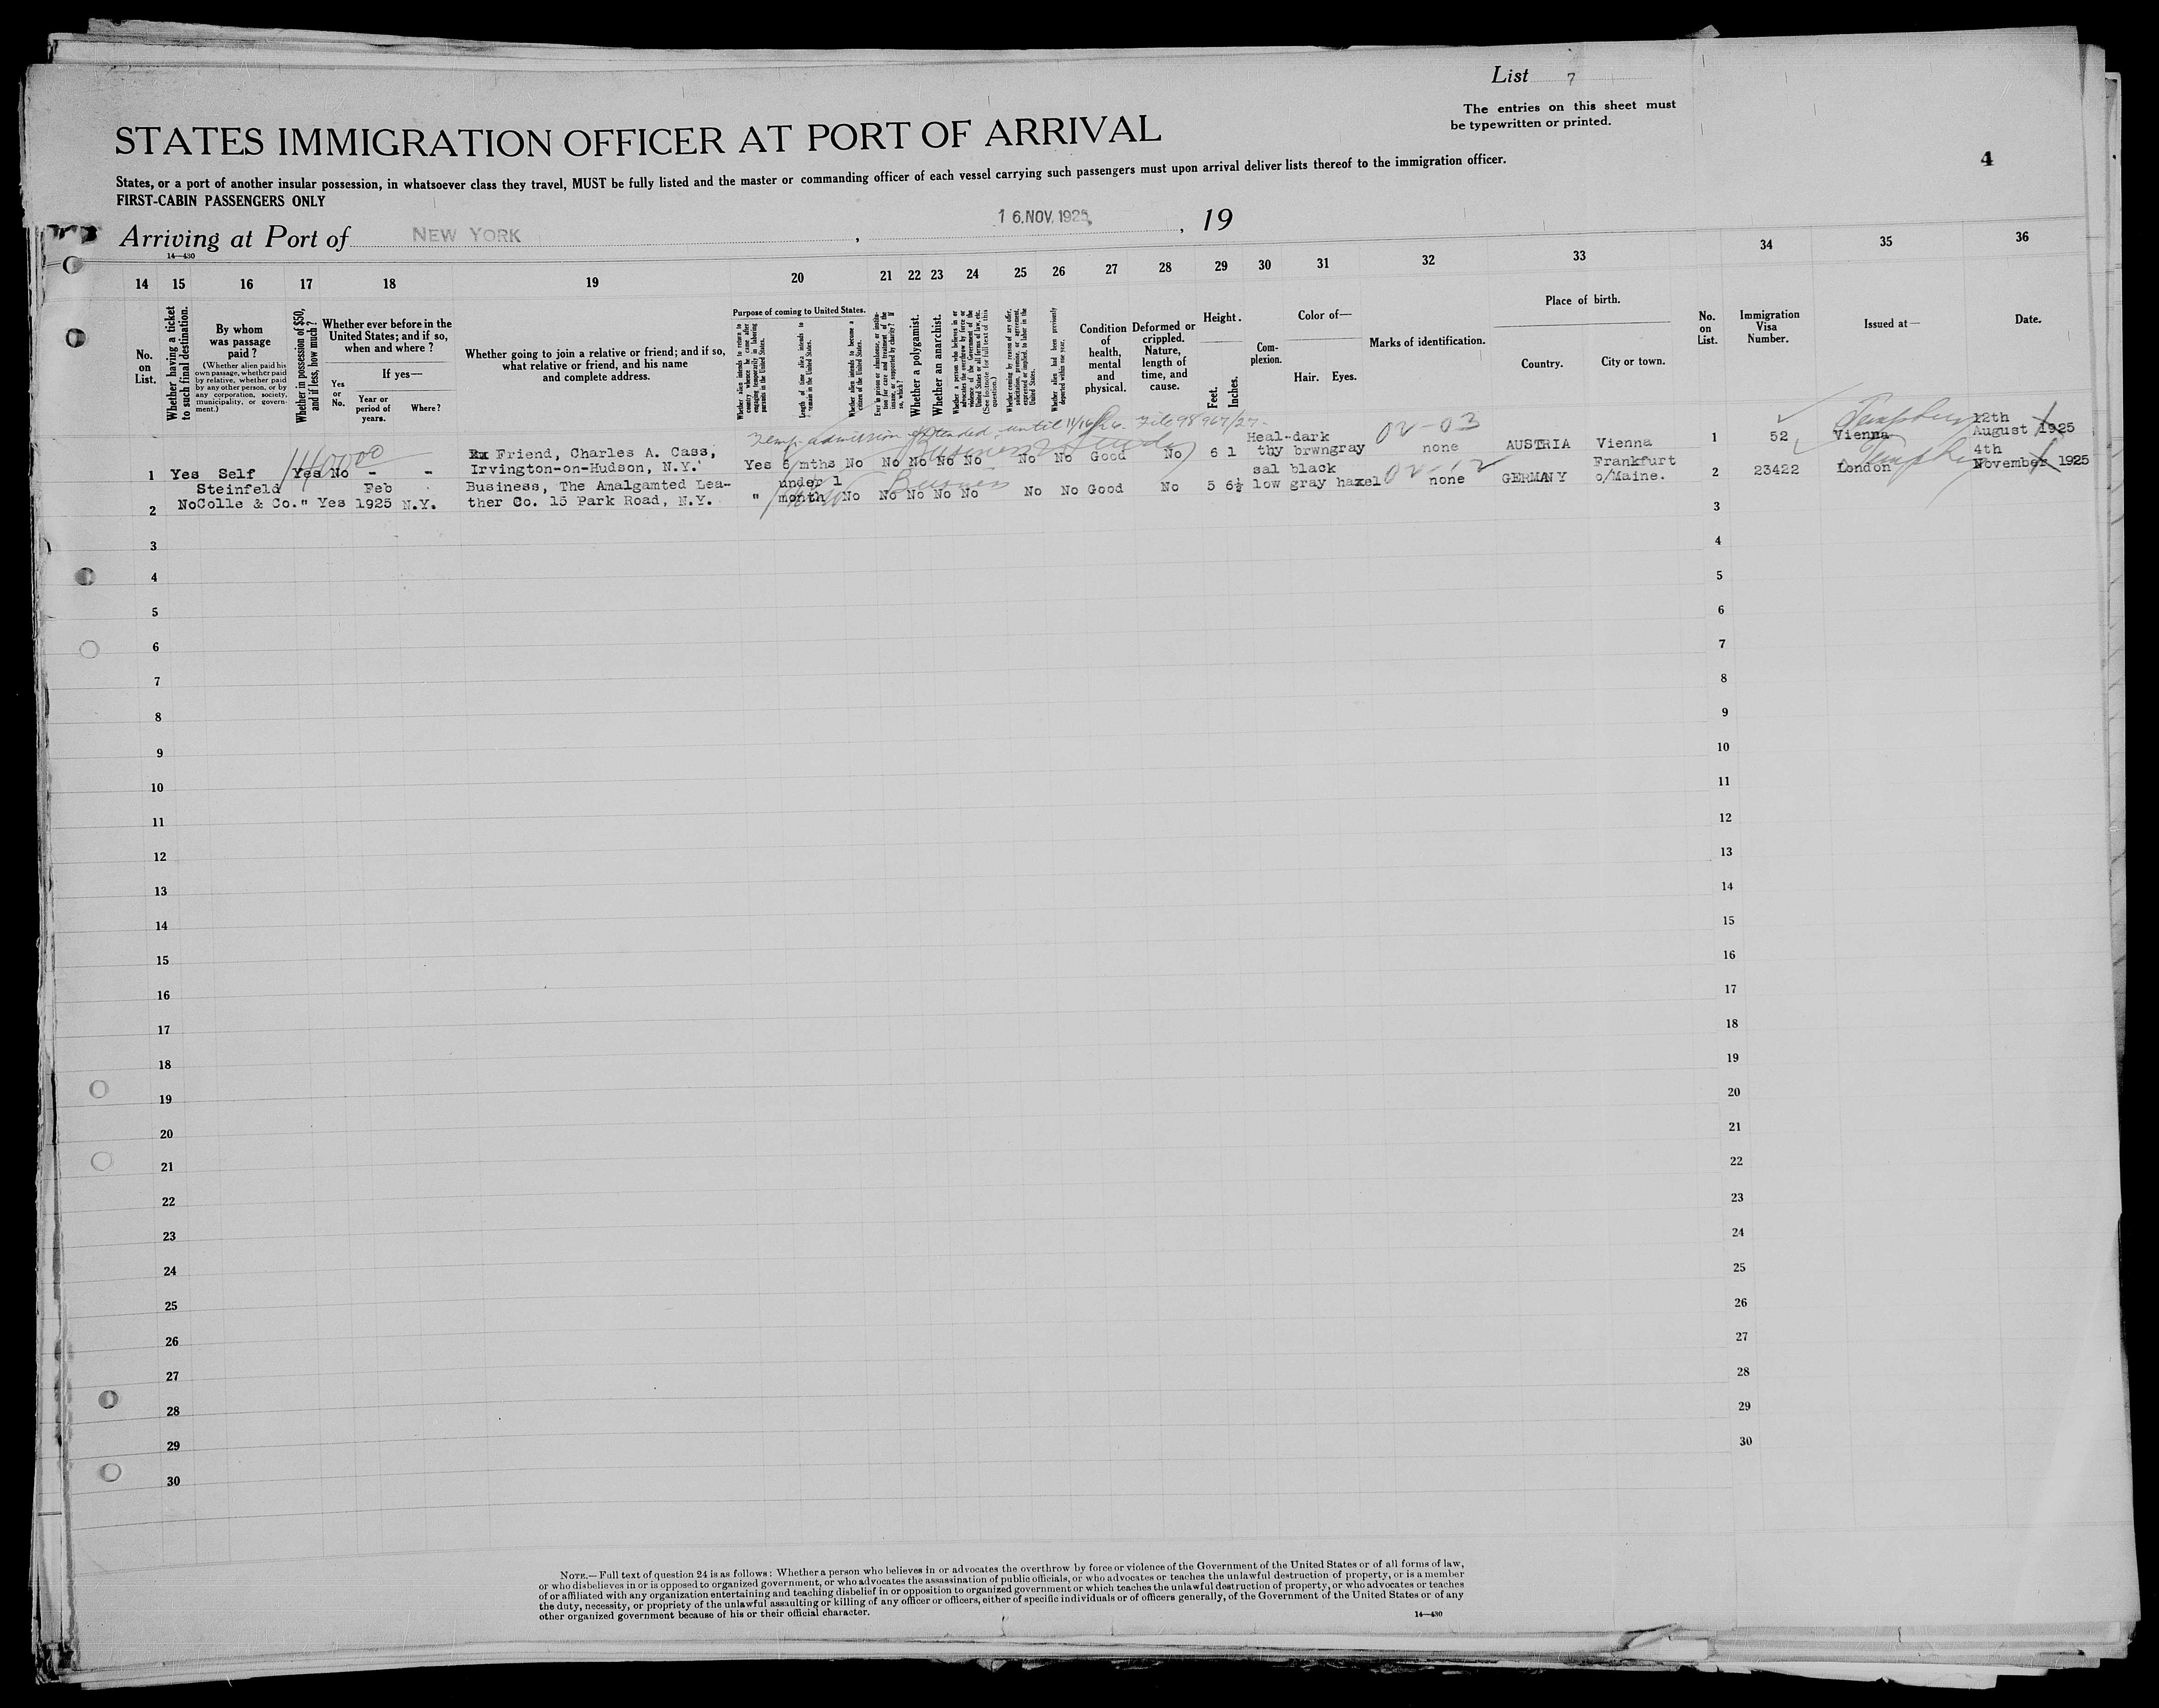 List 7
The entries on this sheet must
be typewritten or printed.
STATES IMMIGRATION OFFICER AT PORT OF ARRIVAL
4
States, or a port of another insular possession, in whatsoever class they travel, MUST be fully listed and the master or commanding officer of each vessel carrying such passengers must upon arrival deliver lists thereof to the immigration officer.
FIRST-CABIN PASSENGERS ONLY
Arriving at Port of NEW YORK , 16.NOV.1925, , 19
14—430
14 15 16 17 18 19 20 21 22 23 24 25 26 27 28 29 30 31 32 33 34 35 36
No. on List.
Whether having a ticket to such final destination.
By whom was passage paid?
(Whether alien paid his own passage, whether paid by relative, whether paid by any other person, or by any corporation, society, municipality, or government.)
Whether in possession of $50, and if less, how much?
Whether ever before in the United States; and if so, when and where?
Yes or No.
If yes—
Year or period of years.
Where?
Whether going to join a relative or friend; and if so, what relative or friend, and his name and complete address.
Purpose of coming to United States.
Whether alien intends to return to country whence he came after engaging temporarily in laboring pursuits in the United States.
Length of time alien intends to remain in the United States.
Whether alien intends to become a citizen of the United States.
Ever in prison or almshouse, or institution for care and treatment of the insane, or supported by charity? If so, which?
Whether a polygamist.
Whether an anarchist.
Whether a person who believes in or advocates the overthrow by force or violence of the Government of the United States or all forms of law, etc. (See footnote for full text of this question.)
Whether coming by reason of any offer, solicitation, promise, or agreement, expressed or implied, to labor in the United States.
Whether alien had been previously deported within one year.
Condition of health, mental and physical.
Deformed or crippled. Nature, length of time, and cause.
Height.
Feet. Inches.
Complexion.
Color of—
Hair. Eyes.
Marks of identification.
Place of birth.
Country. City or town.
No. on List.
Immigration Visa Number.
Issued at—
Date.
Temp admission extended until 11/16/26. File 98967/27-
Heal-dark 02-03 12th
Friend, Charles A. Cass, AUSTRIA Vienna 1 52 Vienna August 1925
1 Yes Self Yes No - - Irvington-on-Hudson, N.Y. Yes 6 mths No No No No No No No Good No 6 1 thy brwngray none
Steinfeld Feb Business, The Amalgamted Lea- under 1 Business sal black 02-12 Frankfurt 4th
2 NoColle & Co." Yes 1925 N.Y. ther Co. 15 Park Road, N.Y. " month No No No No No No No Good No 5 6½ low gray hazel none GERMANY o/Maine. 2 23422 London November 1925
3 3
4 4
5 5
6 6
7 7
8 8
9 9
10 10
11 11
12 12
13 13
14 14
15 15
16 16
17 17
18 18
19 19
20 20
21 21
22 22
23 23
24 24
25 25
26 26
27 27
28 28
29 29
30 30
NOTE.—Full text of question 24 is as follows: Whether a person who believes in or advocates the overthrow by force or violence of the Government of the United States or of all forms of law,
or who disbelieves in or is opposed to organized government, or who advocates the assassination of public officials, or who advocates or teaches the unlawful destruction of property, or is a member
of or affiliated with any organization entertaining and teaching disbelief in or opposition to organized government or which teaches the unlawful destruction of property, or who advocates or teaches
the duty, necessity, or propriety of the unlawful assaulting or killing of any officer or officers, either of specific individuals or of officers generally, of the Government of the United States or of any
other organized government because of his or their official character.
14—430